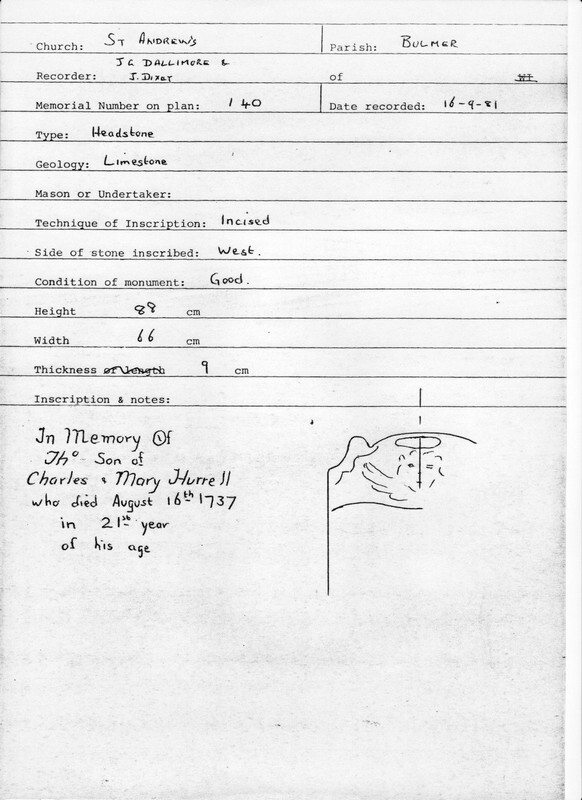 Church: St Andrew's Parish: Bulmer
J G Dallimore &
Recorder: J. Dixey of
Memorial Number on plan: 140 Date recorded: 16-9-81
Type: Headstone
Geology: Limestone
Mason or Undertaker:
Technique of Inscription: Incised
Side of stone inscribed: West.
Condition of monument: Good.
Height 88 cm
Width 66 cm
Thickness or length 9 cm
Inscription & notes:
In Memory Of
Tho Son of
Charles & Mary Hurrell
who died August 16th 1737
in 21st year
of his age